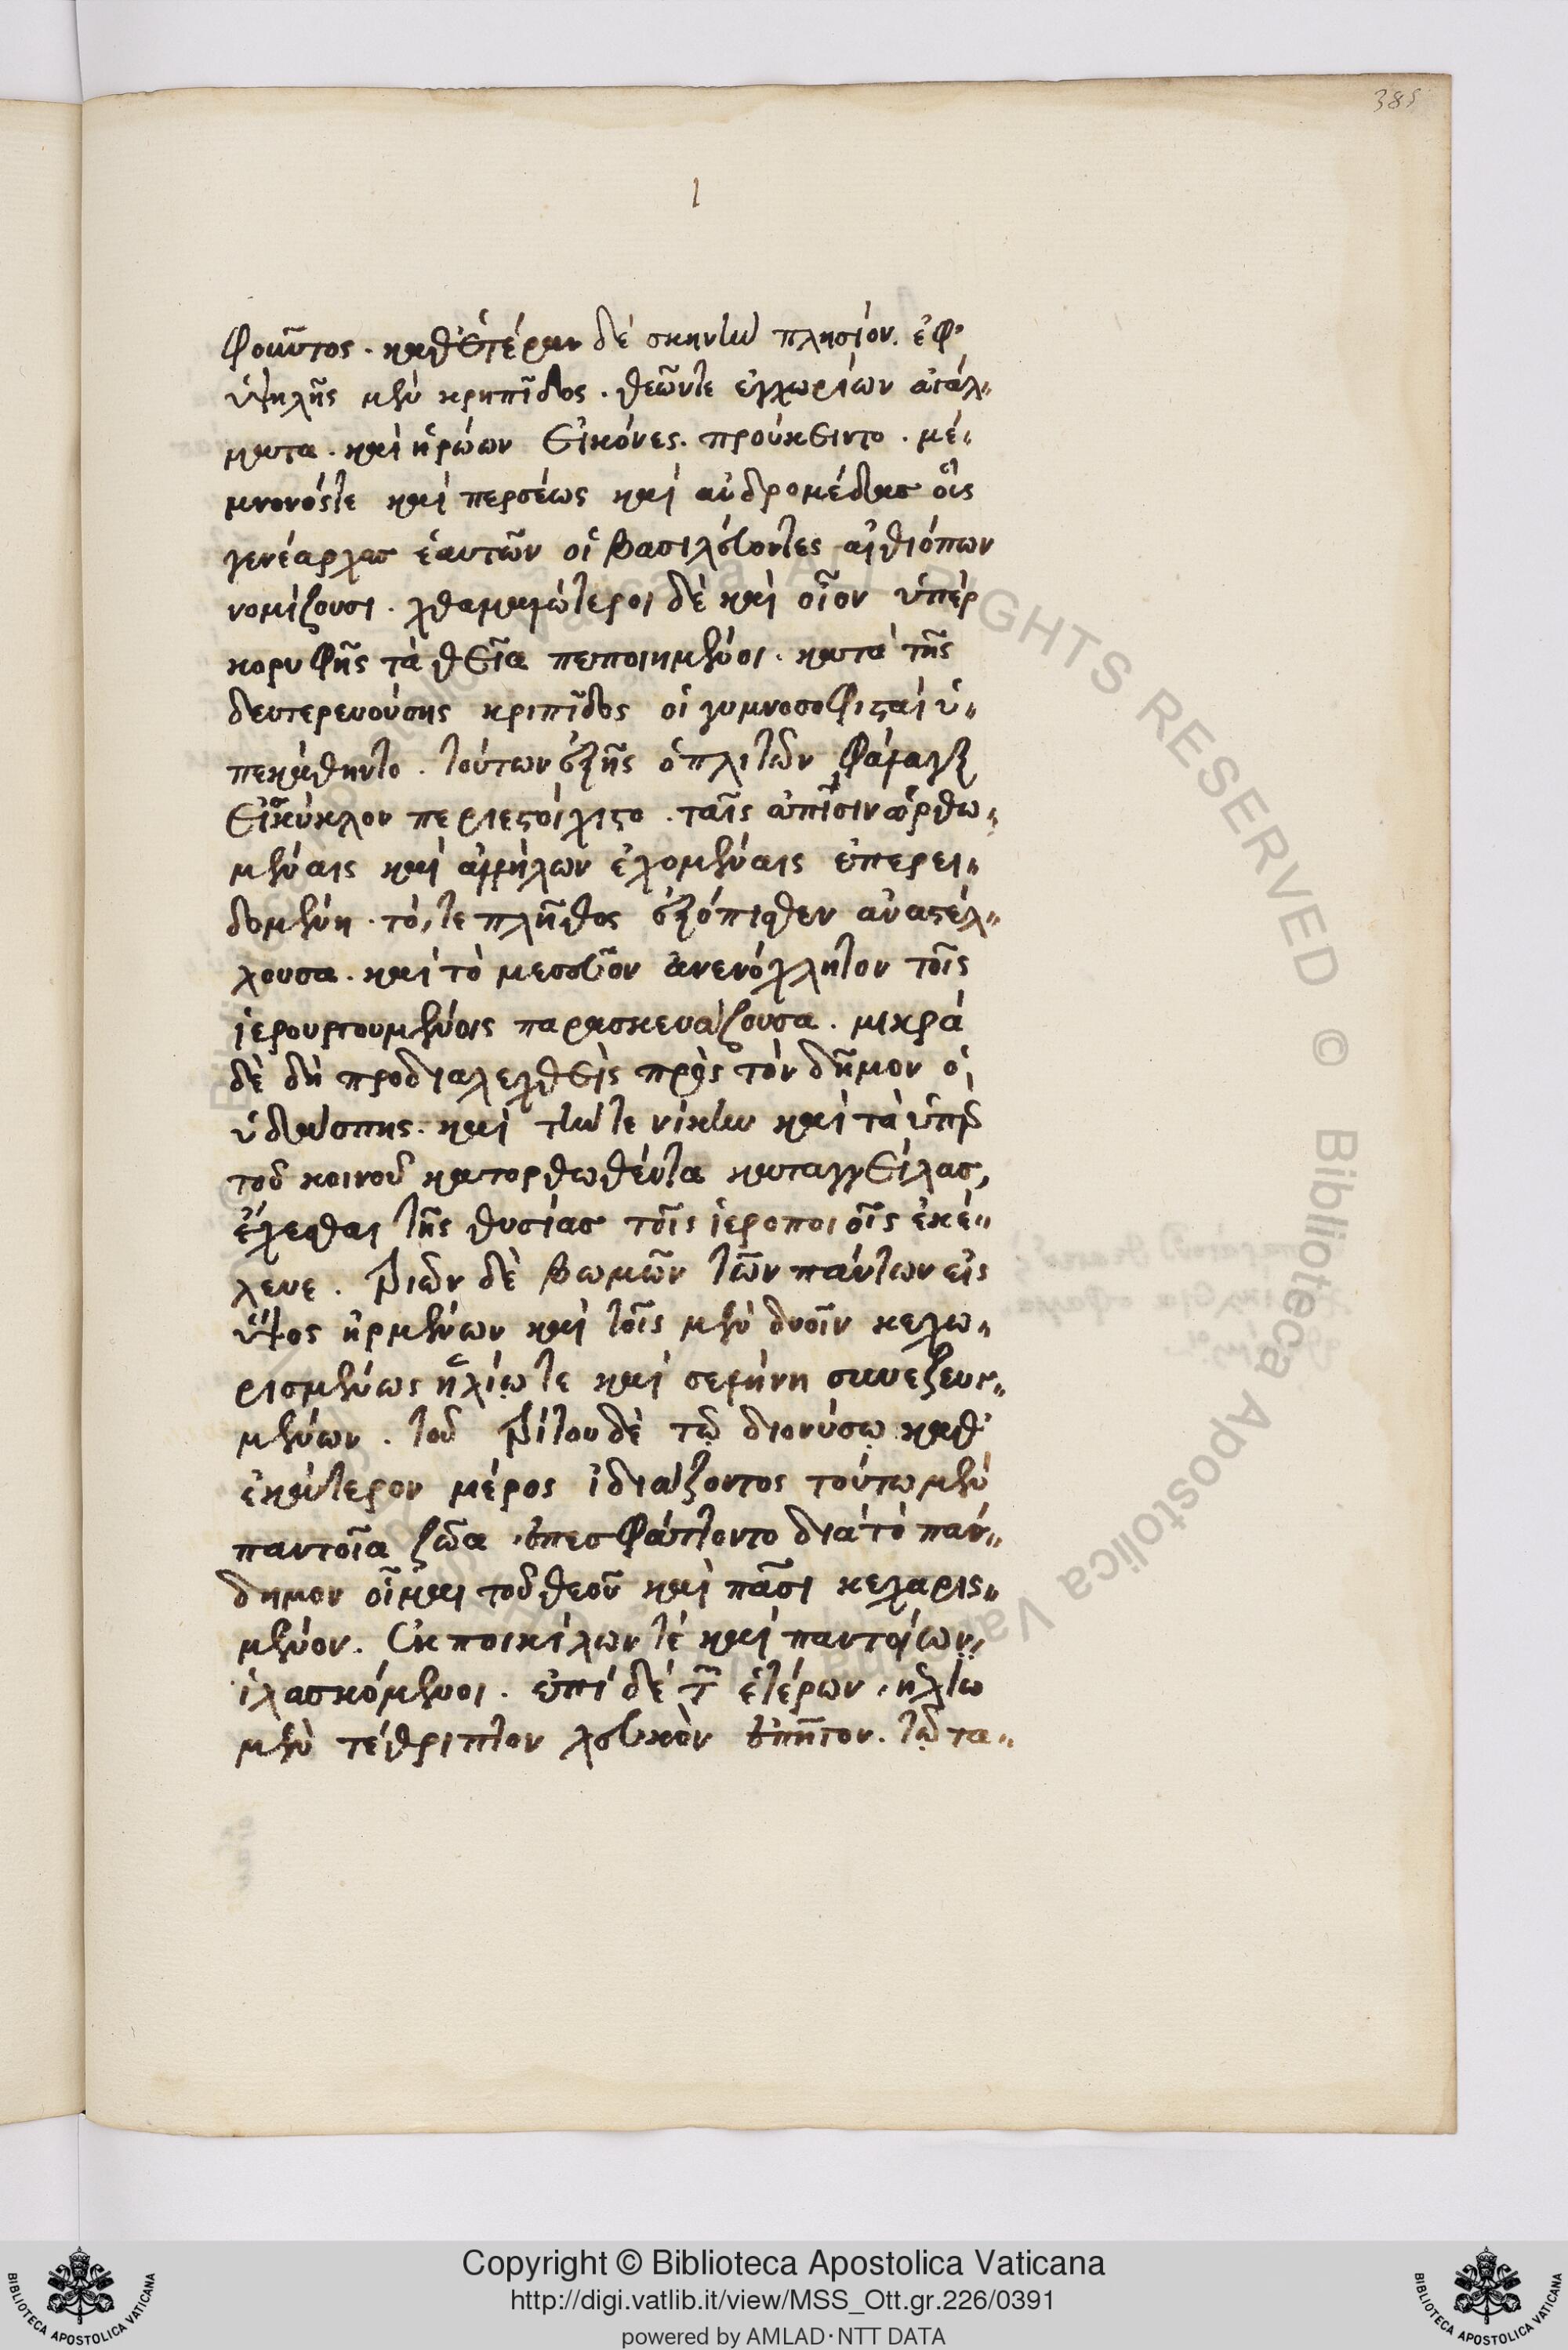 385
1
φοιῶντος. καθ' ἑτέραν δὲ σκηνὴν πλησίον. ἐφ'
ὑψηλῆς μὲν κρηπῖδος. θεῶντε ἐγχωρίων ἀγάλ-
ματα. καὶ ἡρώων εἰκόνες. προύκειντο. μέ-
μνονόστε καὶ περσέως καὶ ἀνδρομέδας οὓς
γενέαρχας ἑαυτῶν οἱ βασιλεύοντες αἰθιόπων
νομίζουσι. χθαμαλώτεροι δὲ καὶ οἷον ὑπὲρ
κορυφῆς τὰ θεῖα πεποιημένοι. κατὰ τῆς
δευτερευούσης κριπῖδος οἱ γυμνοσοφισταὶ ὑ-
πεκάθηντο. τούτων ἑξῆς ὁπλιτῶν φάλαγξ
εἰς κύκλον περιεστοίχιστο. ταῖς ἀσπίσιν ὀρθω-
μέναις καὶ ἀλλήλων ἐχομέναις ἐπερει-
δομένη. τό,τε πλῆθος ἐξόπισθεν ἀναστέλ-
λουσα. καὶ τὸ μεσεῦον ἀνενόχλητον τοῖς
ἱερουργουμένοις παρασκευάζουσα. μικρὰ
δὲ δὴ προδιαλεχθεὶς πρὸς τὸν δῆμον ὁ
ὑδάσπης. καὶ τήντε νίκην καὶ τὰ ὑπὲρ
τοῦ κοινοῦ κατορθωθέντα καταγγείλας,
ἔχεσθαι τῆς θυσίας τοῖς ἱεροποιοῖς ἐκέ-
λευε. τριῶν δὲ βωμῶν τῶν πάντων εἰς
ὕψος ἠρμένων καὶ τοῖς μὲν δυοῖν κεχω-
ρισμένως ἡλίῳ τε καὶ σελήνῃ συνεζευγ-
μένων. τοῦ τρίτου δὲ τῷ διονύσῳ καθ'
ἑκάτερον μέρος ἰδιάζοντος τούτῳ μὲν
παντοῖα ζῶα ἐπεσφάττοντο διὰ τὸ πάν-
δημον οἶμαι τοῦ θεοῦ καὶ πᾶσι κεχαρισ-
μένον. ἐκ ποικίλων τὲ καὶ παντοίων
ἱλασκόμενοι. ἐπὶ δὲ τῶν ἑτέρων, ἡλίῳ
μὲν τέθριππον λευκὸν ἐπῆγον. τῷ τα-
Copyright © Biblioteca Apostolica Vaticana
http://digi.vatlib.it/view/MSS_Ott.gr.226/0391
powered by AMLAD·NTT DATA